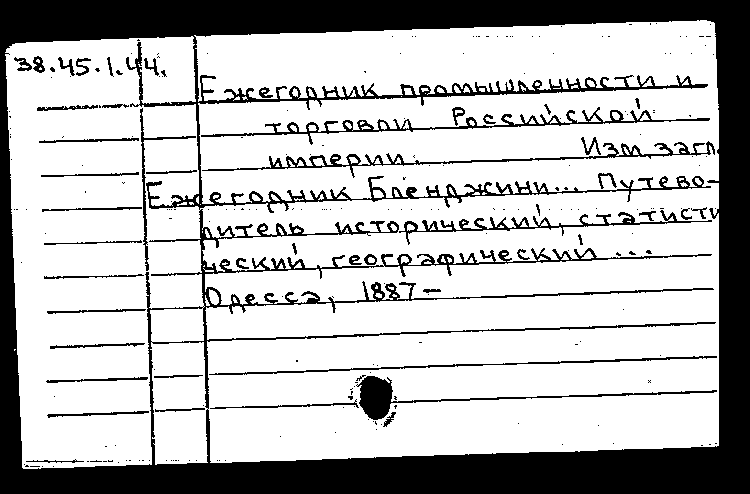 38.45.1.44.
Ежегодник промышленности и
торговли Российской
империи. Изм. загл.
Ежегодник Бленджини... Путево-
дитель исторический, статисти
ческий, географический ...
Одесса, 1887-